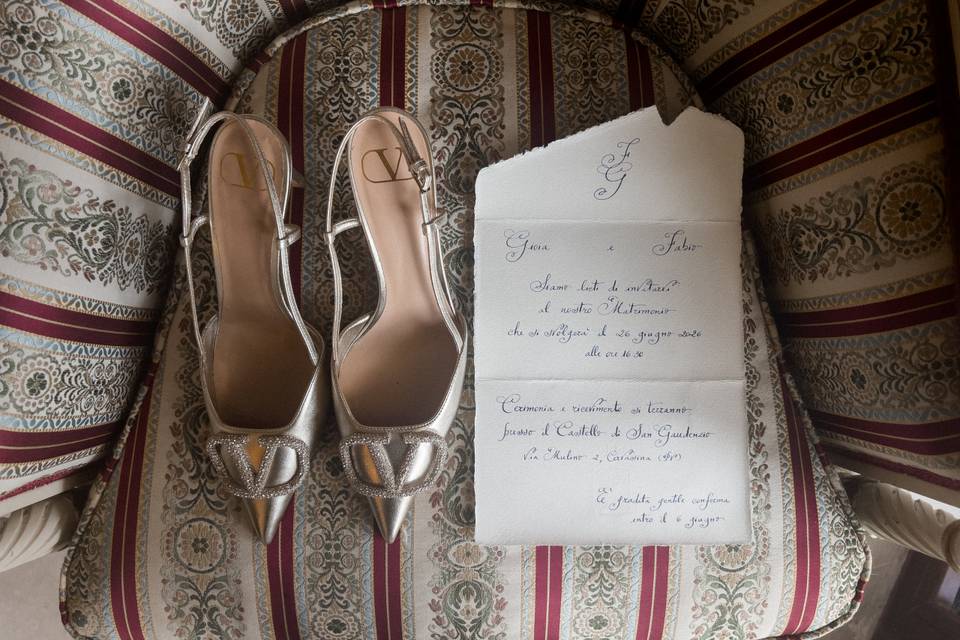 V
V
V
V
F
G
Gioia e Fabio
Siamo lieti di invitarvi
al nostro Matrimonio
che si svolgerà il 26 giugno 2026
alle ore 16:30
Cerimonia e ricevimento si terranno
presso il Castello di San Gaudenzio
Via Mulino 2, Cervesina (PV)
È gradita gentile conferma
entro il 6 giugno